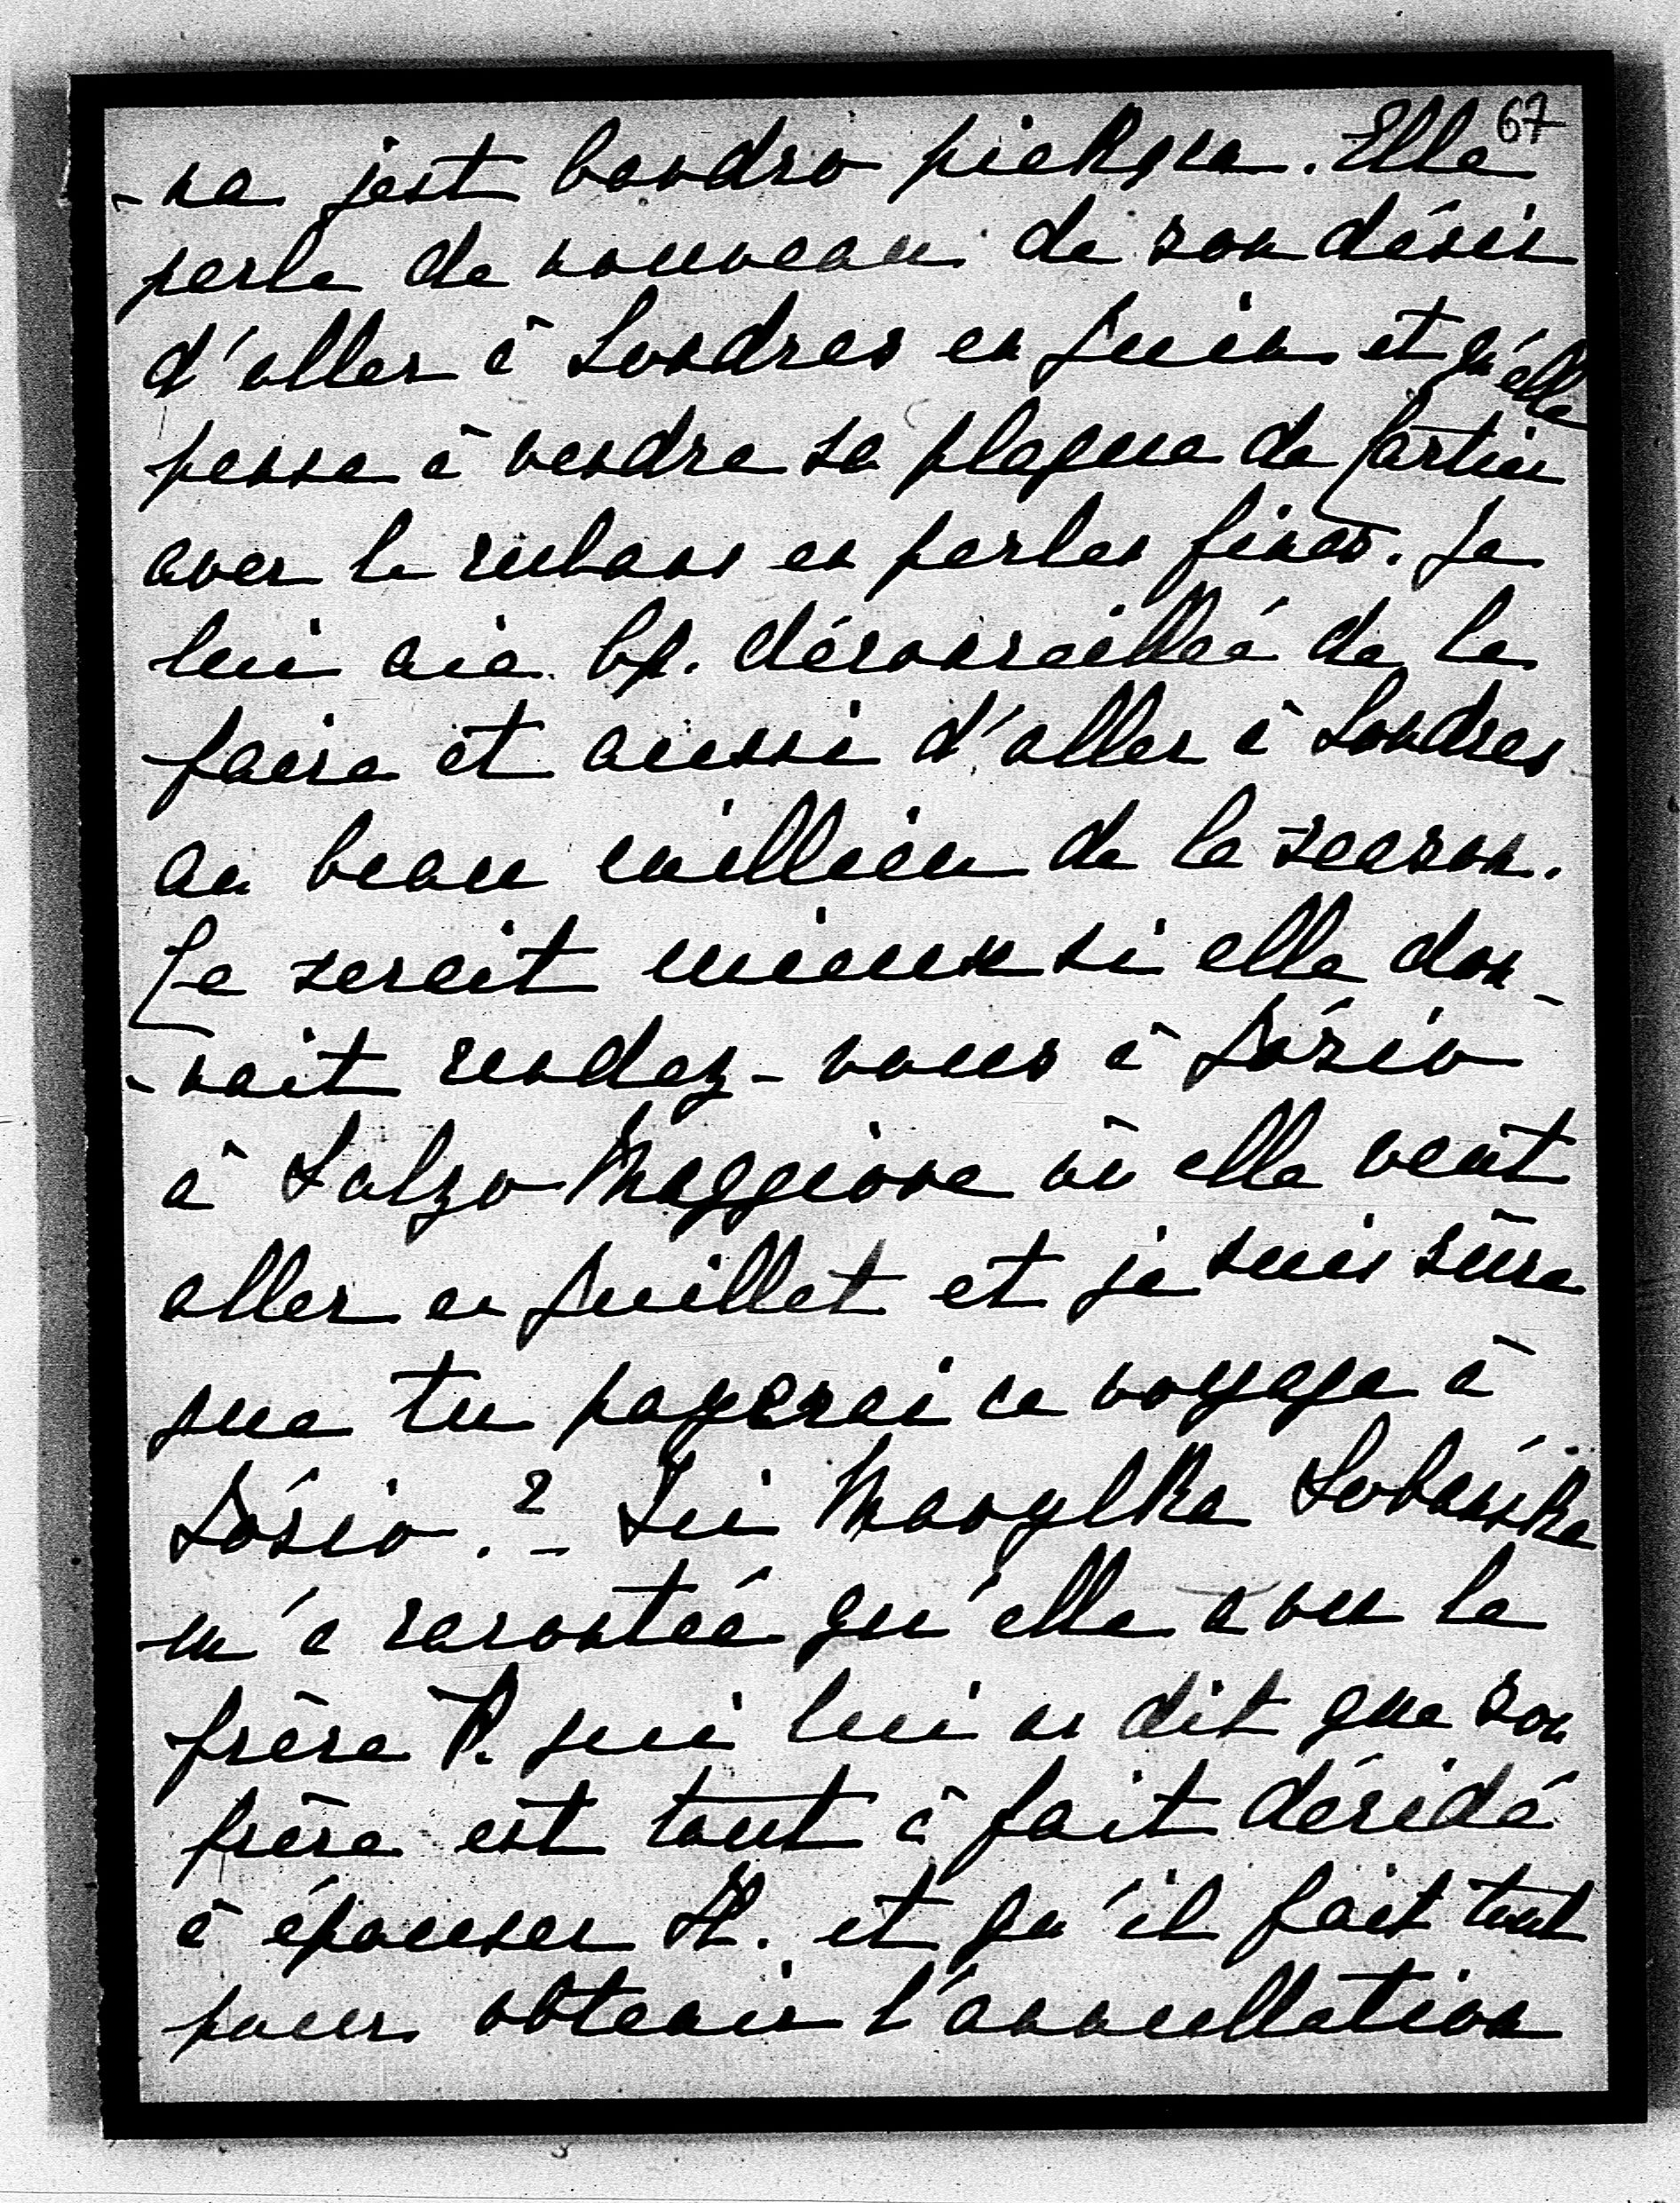 67
-na jest bardzo piękna. Elle
parle de nouveau de son désir
d'aller à Londres en Juin et qu'elle
pense à vendre sa plaque de Cartier
avec le rubans en perles fines. Je
lui aie bp. déconseilleé de le
faire et aussi d'aller à Londres
au beau millieu de la season.
Ce serait mieux si elle don-
-nait rendez-vous à Józio
à Salzo Maggiore où elle veut
aller en Juillet et je suis sûre
que tu payerai ce voyage à
Józio.? - Ici Marylka Sobańska
m'a raconteé qu'elle a vu le
frère P. qui lui a dit que son
frère est tout à fait décidé
à épouser H. et qu'il fait tout
pour obtenir l'annullation